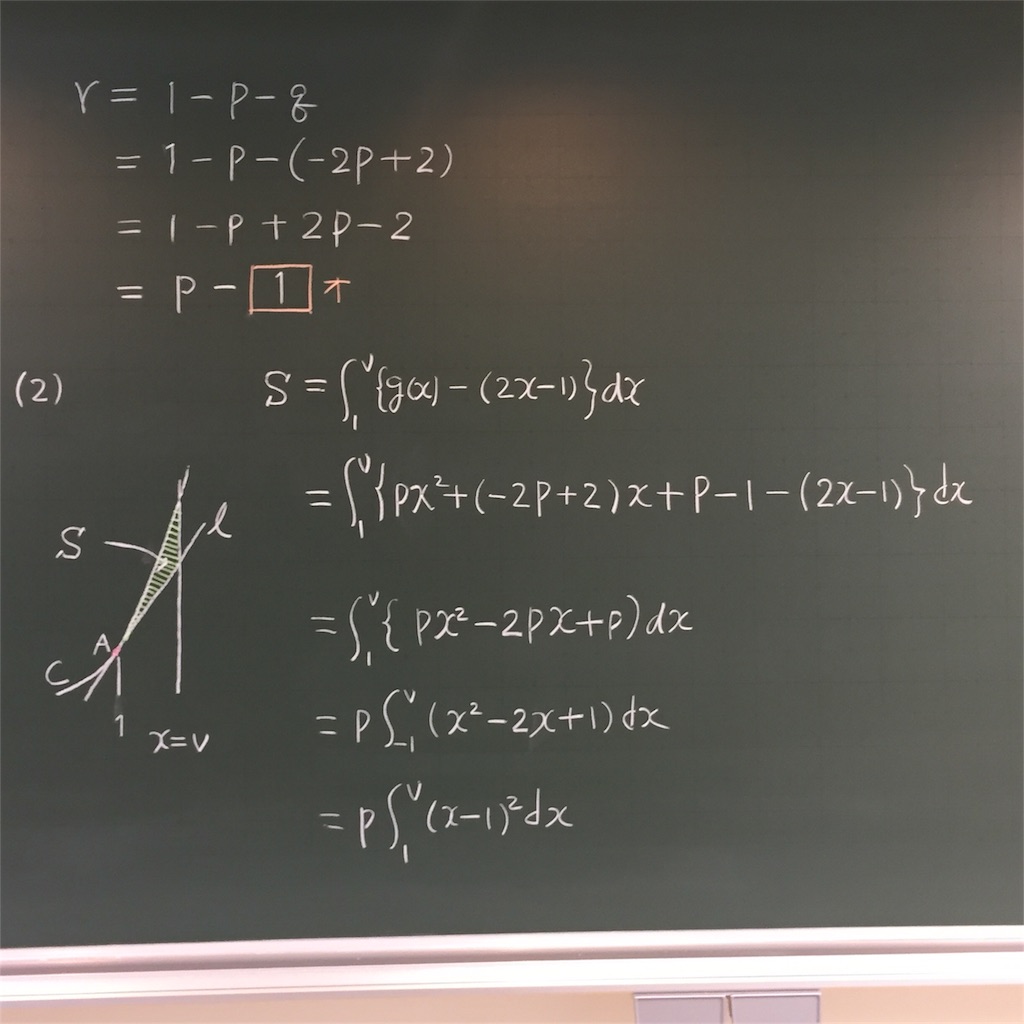 r = 1 - p - q
= 1 - p - (-2p+2)
= 1 - p + 2p - 2
= p - 1 オ
(2)
S = ∫₁ᵛ {g(x) - (2x-1)} dx
= ∫₁ᵛ {px²+(-2p+2)x+p-1-(2x-1)} dx
= ∫₁ᵛ { px²-2px+p) dx
= p ∫₋₁ᵛ (x²-2x+1) dx
= p ∫₁ᵛ (x-1)² dx
S
l
A
C
1
x=v